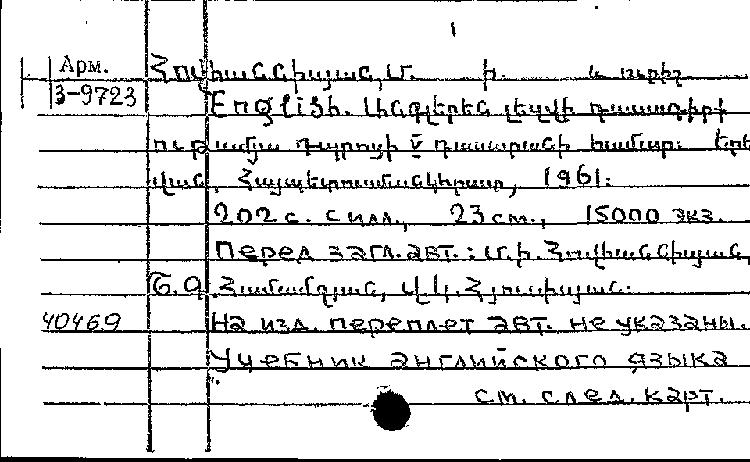 1
Арм. Հովհաննիսյան, Մ. Ի. և ուրիշ
3-9723 English. Անգլերեն լեզվի դասագիրք
ութամյա դպրոցի V դասարանի համար: Երե
վան, Հայպետուսմանկհրատ, 1961:
202 с. с илл., 23 см., 15000 экз.
Перед загл. авт.: Մ.Ի. Հովհաննիսյան,
Համամջյան, Վ.Կ. Հյուսիսյան:
40469 На изд. переплет авт. не указаны.
Учебник английского языка
см. след. карт.